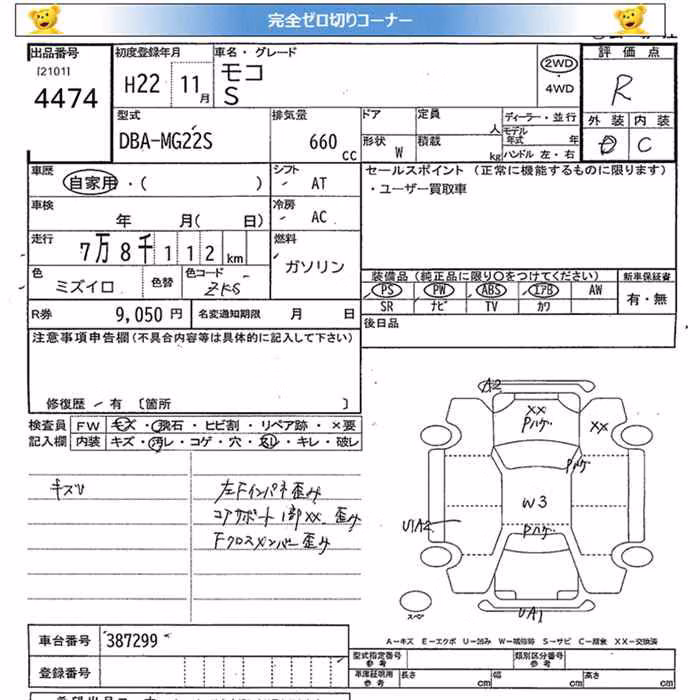 完全ゼロ切りコーナー
出品番号 初度登録年月 車名・グレード 評価点
[2101] H22 11月 モコ 2WD R
4474 S 4WD
型式 排気量 ドア 定員 人 ディーラー・並行 外装 内装
DBA-MG22S 660cc 形状 W 積載 kg モデル年式 年 D C
ハンドル 左・右
車歴 シフト セールスポイント (正常に機能するものに限ります)
自家用・( ) AT ・ユーザー買取車
車検 冷房
年 月( 日) AC
走行 燃料
7万8千112km ガソリン
色 色替 色コード 装備品(純正品に限り〇をつけてください) 新車保証書
ミズイロ ZKS PS PW ABS エアB AW 有・無
R券 9,050円 名変通知期限 月 日 SR ナビ TV カワ
注意事項申告欄(不具合内容等は具体的に記入して下さい) 後日品
修復歴 - 有 〔箇所 〕
検査員 FW キズ・飛石・ヒビ割・リペア跡・×要
記入欄 内装 キズ・汚レ・コゲ・穴・スレ・キレ・破レ
キズU 左Fインパネ歪み
コアサポート 1部XX 歪み
Fクロスメンバー歪み
A2
XX Pハゲ XX
Pハゲ
W3
U1A2 Pハゲ
スペア UA1
A-キズ E-エクボ U-凹み W-補修跡 S-サビ C-腐食 XX-交換済
車台番号 387299 型式指定番号 参考 類別区分番号 参考
登録番号 車庫証明用 参考 長さ cm 幅 cm 高さ cm